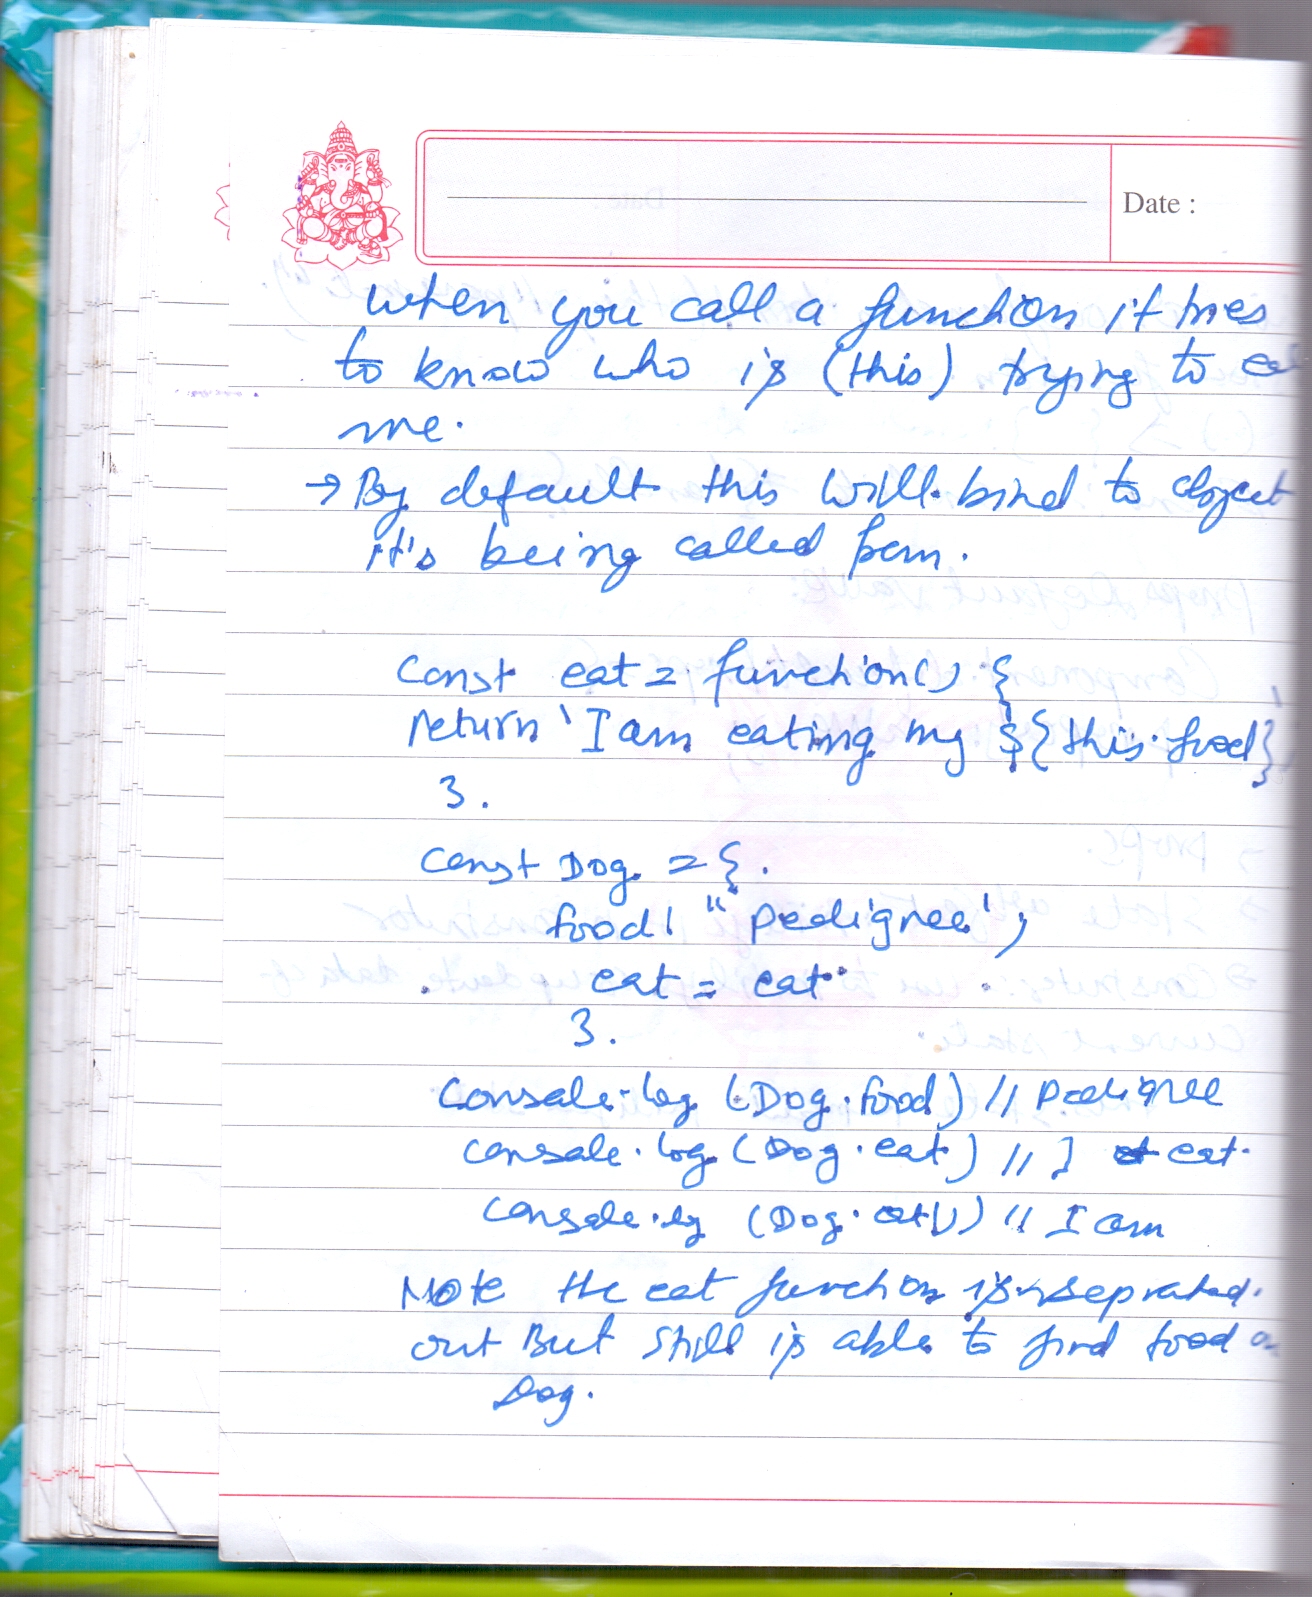 Date :
when you call a function it tries
to know who is (this) trying to
me.
→ By default this will bind to object
it's being called from.
const eat = function() {
return `I am eating my ${this.food}
}.
const Dog = {.
food: "pedigree",
eat = eat
}.
console.log (Dog.food) // pedigree
console.log (Dog.eat) // eat.
console.log (Dog.eat()) // I am
Note the eat function is seprated.
out But still is able to find food
Dog.